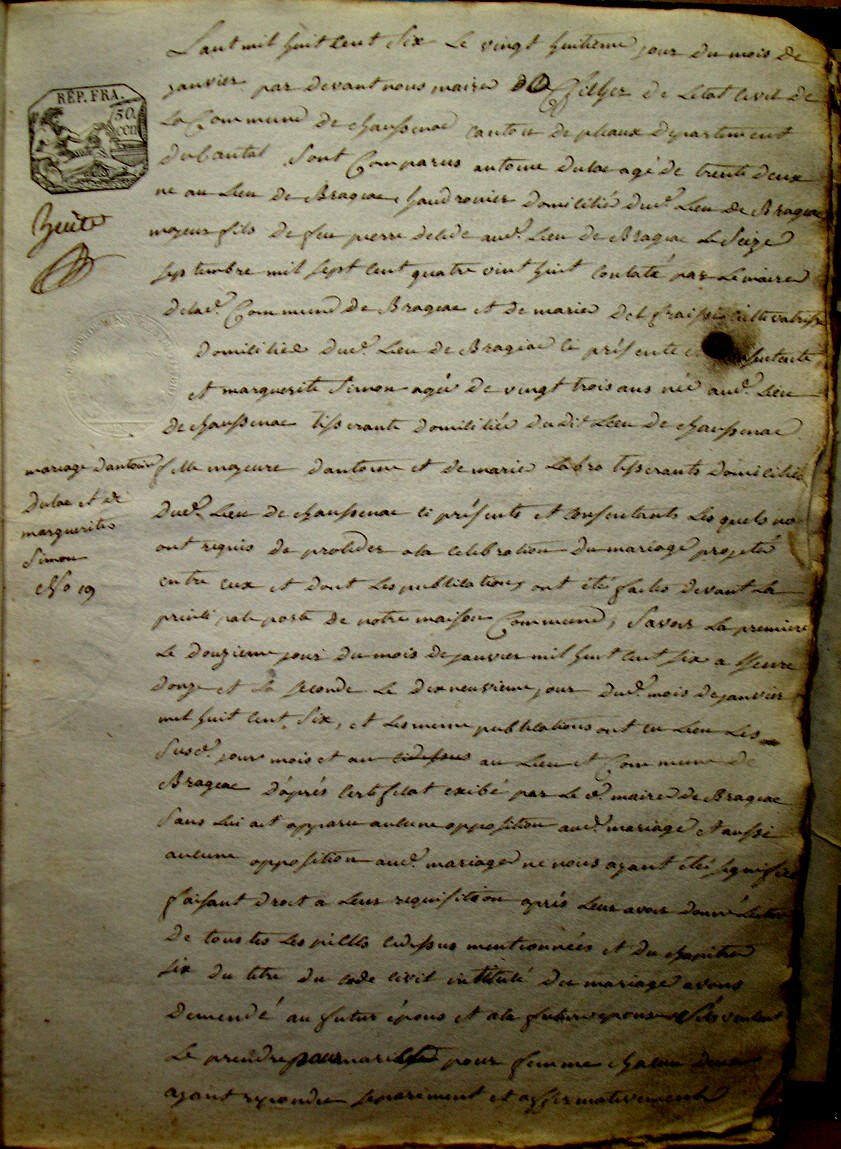 L'ant mil huit cent Six Le vingt huitieme jour du mois de
janvier par devant nous maire Officier de Letat Civil de
La Commune de chaussenac canton de pleaux departement
du Cantal Sont Comparus antoine Dulac agé de trente deux
ne au Lieu de Brageac chaudronier domicilié dud. Lieu de Brageac
mojeur fils de feu pierre décédé aud. Lieu de Brageac Le Seize
septembre mil sept cent quatre vint huit contaté par Le maire
de lad. Commune de Brageac et de marie Delfraissi cultivatrisse
domiciliée dud. Lieu de Brageac ci présente et
et marguerite Simon agée de vingt trois ans née aud. Lieu
de chaussenac tisserante domiciliée du dit Lieu de chaussenac
fille mojeure d'antoine et de marie Labro tisserants domiciliés
dud. Lieu de chaussenac ci présents et consentants Les quels no
ont requis de proceder a la celebration du mariage projeté
entre eux et dont Les publications ont été faites devant La
principale porte de notre maison Commune, Savoir La premiere
Le douzieme jour du mois de janvier mil huit cent six a heure
douze et La seconde Le dixneuvieme jour dud. mois de janvier
mil huit cent Six, et Les meme publications ont eu Lieu Les
Susd. jour mois et an au Lieu et Commune de
Brageac d'après Certificat exibé par Le d. maire de Brageac
Sans Lui ait apparu aucune opposition aud. mariage et aussi
aucune opposition aud. mariage ne nous ayant été signifiée
faisant droit a Leur requisition après Leur avoir donné Lecture
De toutes Les pieces cidessus mentionnées et du chapitre
six du titre du code civil intitulé du mariage avons
demendé au futur épous et a la future epouse S'ils veulent
Le prendre pour mari pour femme chacun deux
ayant repondu separément et affirmativement
RÉP. FRA.
50
cen
huite
mariage dantoine
dulac et de
marguerite
Simon
No 19